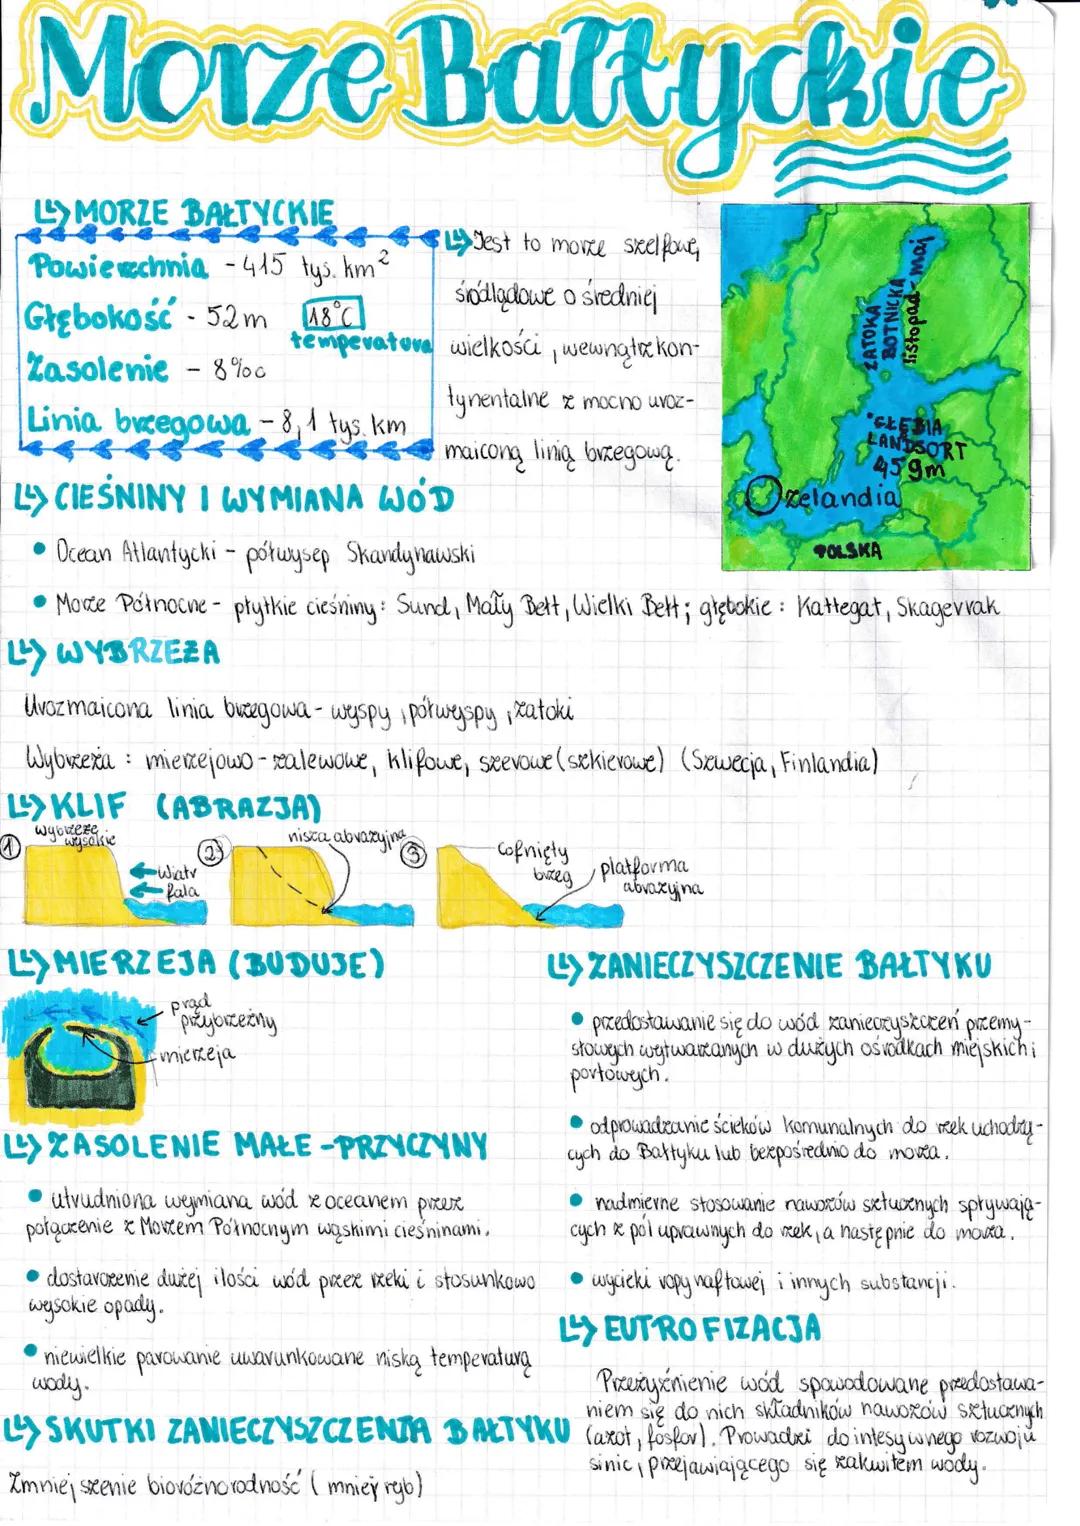 Morze Bałtyckie
MORZE BAŁTYCKIE
Powierzchnia - 415 tys. km²
Głębokość - 52m
18°C
temperatura
Zasolenie - 8‰
Linia brzegowa - 8,1 tys. km
Jest to morze szelfowe,
śródlądowe o średniej
wielkości, wewnątrzkon-
tynentalne z mocno uroz-
maiconą linią brzegową.
ZATOKA
BOTNICKA
listopad - maj
GŁĘBIA
LANDSORT
459m
Zelandia
POLSKA
CIEŚNINY I WYMIANA WÓD
• Ocean Atlantycki - półwysep Skandynawski
• Morze Północne - płytkie cieśniny: Sund, Mały Bełt, Wielki Bełt; głębokie: Kattegat, Skagerrak
WYBRZEŻA
Urozmaicona linia brzegowa - wyspy, półwyspy, zatoki
Wybrzeża: mierzejowo - zalewowe, klifowe, szerowe (szkierowe) (Szwecja, Finlandia)
KLIF (ABRAZJA)
1
wybrzeże
wysokie
wiatr
fala
2
nisza abrazyjna
3
cofnięty
brzeg
platforma
abrazyjna
MIERZEJA (BUDUJE)
prąd
przybrzeżny
mierzeja
ZASOLENIE MAŁE - PRZYCZYNY
• utrudniona wymiana wód z oceanem przez
połączenie z Morzem Północnym wąskimi cieśninami.
• dostarczenie dużej ilości wód przez rzeki i stosunkowo
wysokie opady.
• niewielkie parowanie uwarunkowane niską temperaturą
wody.
SKUTKI ZANIECZYSZCZENIA BAŁTYKU
Zmniejszenie bioróżnorodność (mniej ryb)
ZANIECZYSZCZENIE BAŁTYKU
• przedostawanie się do wód zanieczyszczeń przemy-
słowych wytwarzanych w dużych ośrodkach miejskich i
portowych.
• odprowadzanie ścieków komunalnych do rzek uchodzą-
cych do Bałtyku lub bezpośrednio do morza.
• nadmierne stosowanie nawozów sztucznych spływają-
cych z pól uprawnych do rzek, a następnie do morza.
• wycieki ropy naftowej i innych substancji.
EUTROFIZACJA
Przeżyźnienie wód spowodowane przedostawa-
niem się do nich składników nawozów sztucznych
(azot, fosfor). Prowadzi do intesywnego rozwoju
sinic, przejawiającego się zakwitem wody.